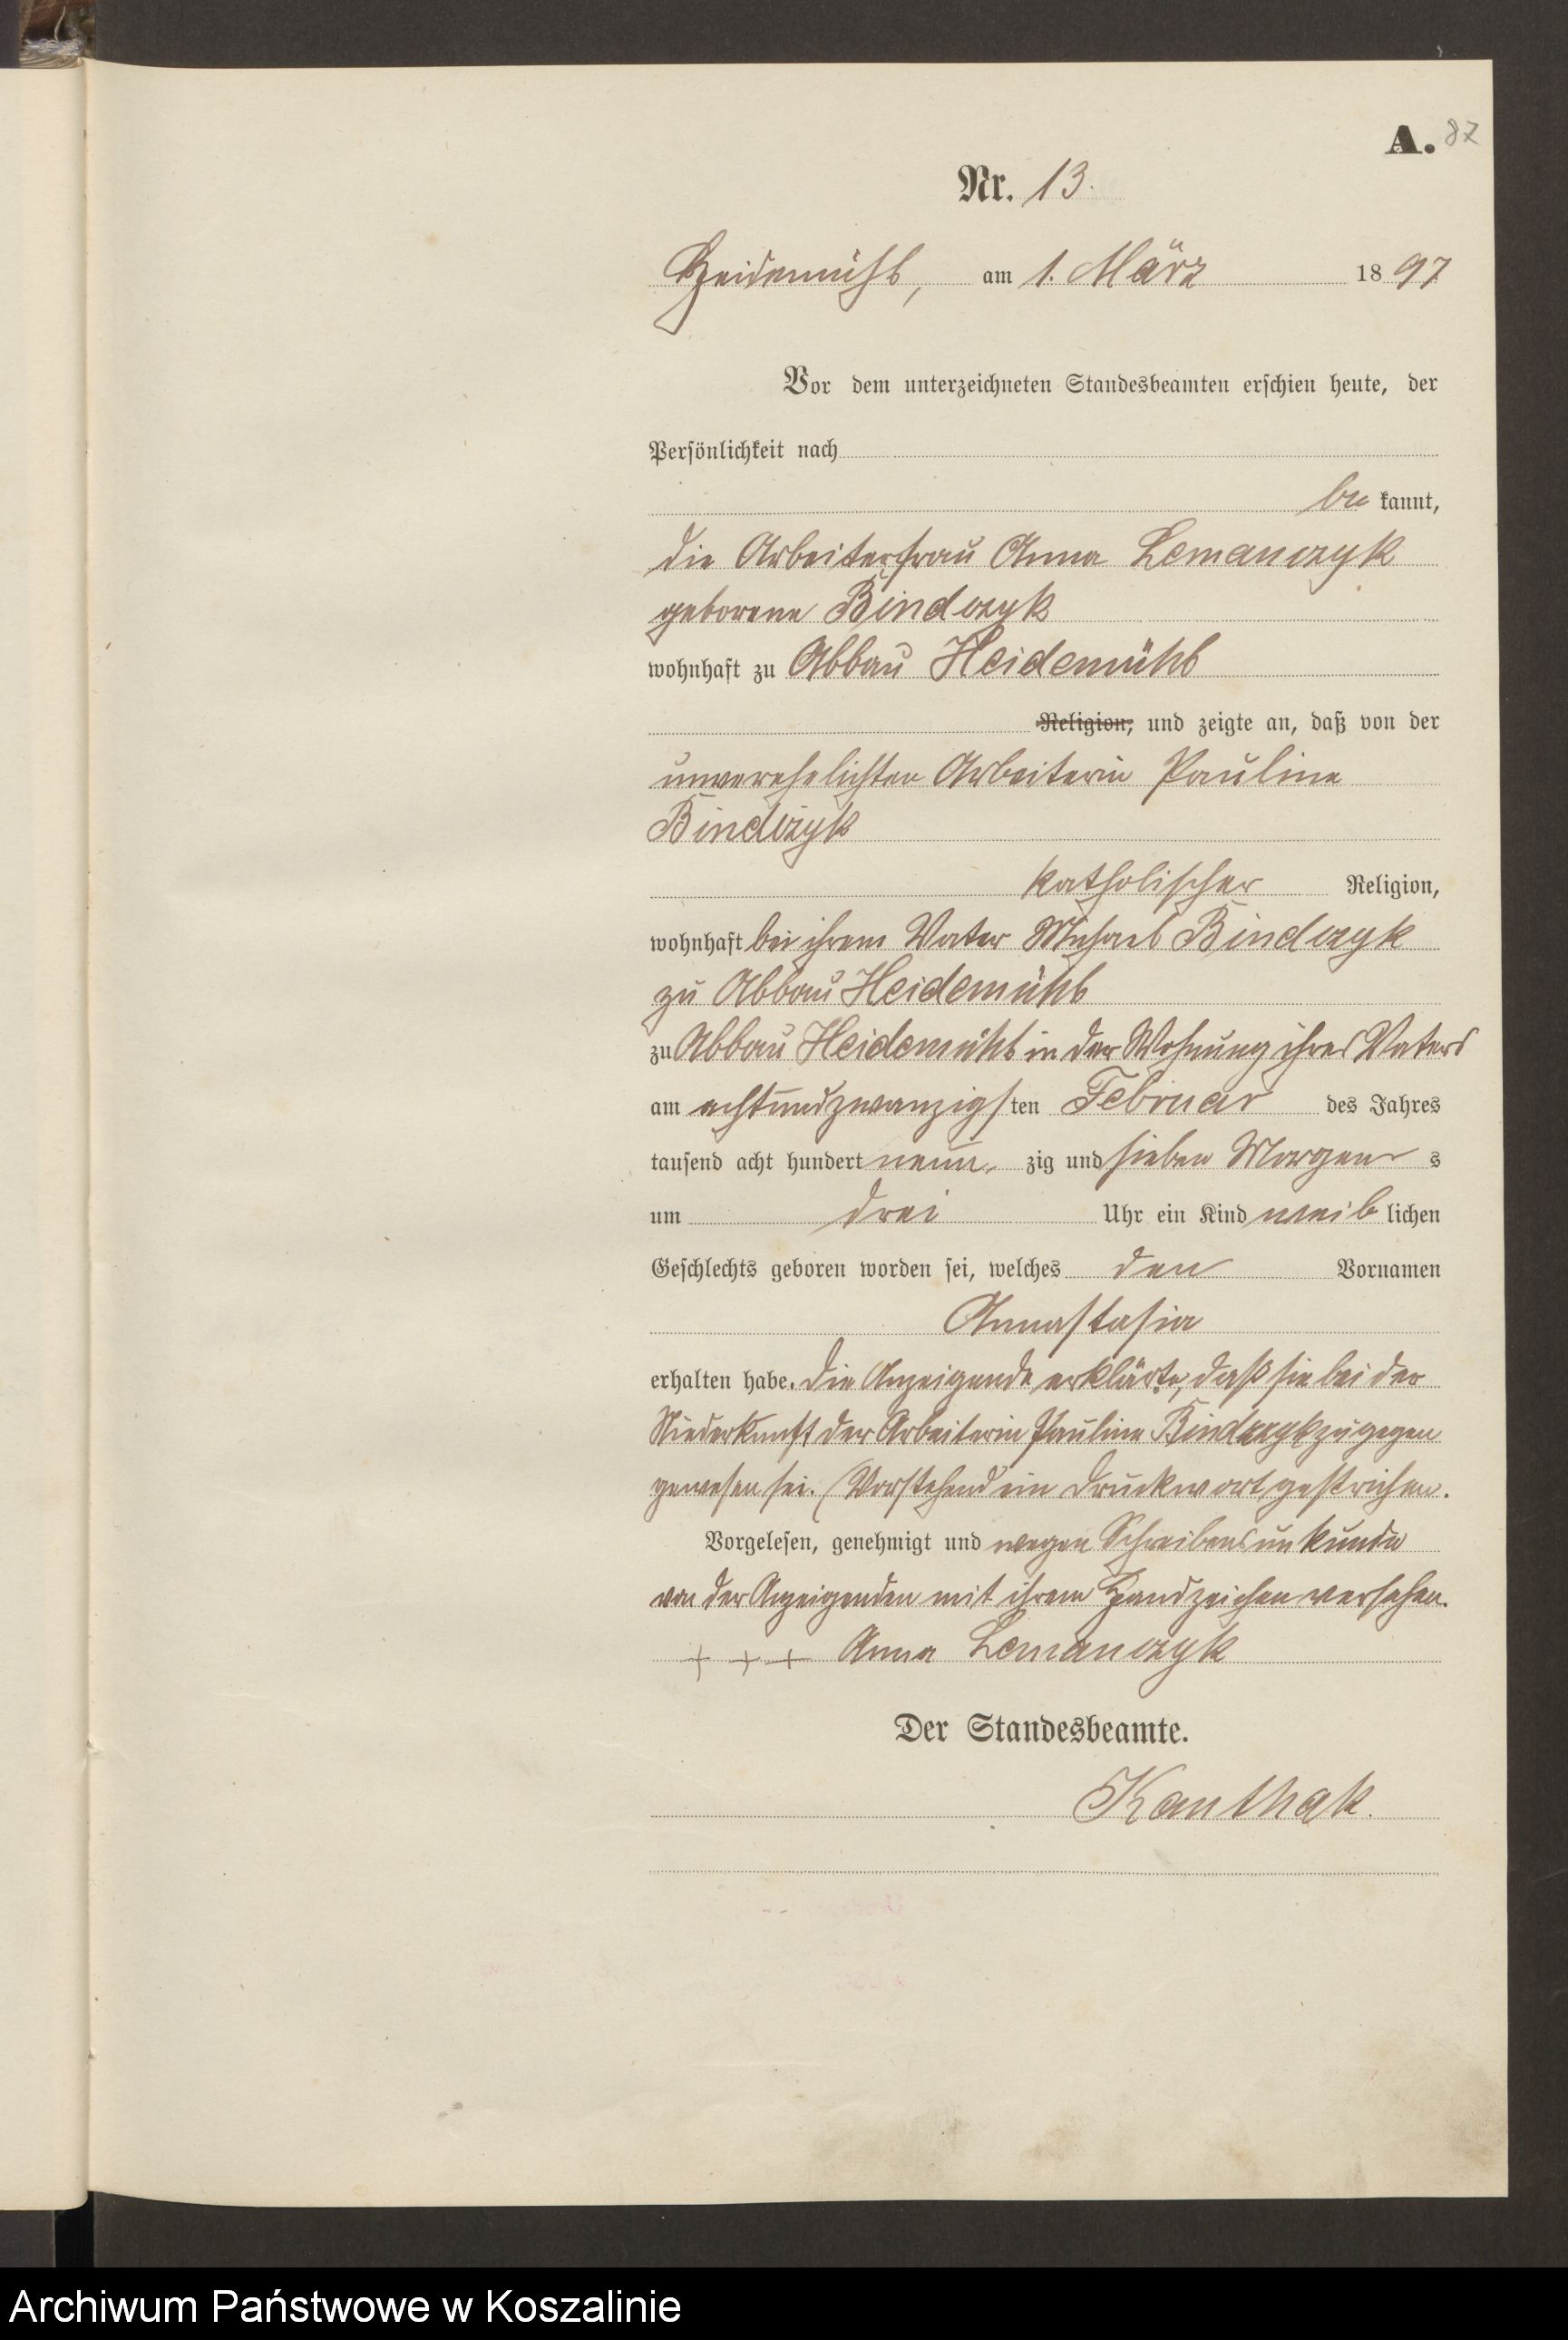 A. 87
Nr. 13.
Heidemühl, am 1. März 1897
Vor dem unterzeichneten Standesbeamten erschien heute, der
Persönlichkeit nach
be kannt,
die Arbeiterfrau Anna Lemanczyk
geborene Bindczyk
wohnhaft zu Abbau Heidemühl
Religion, und zeigte an, daß von der
unverehelichten Arbeiterin Pauline
Bindczyk
katholischer Religion,
wohnhaft bei ihrem Vater Michael Bindczyk
zu Abbau Heidemühl
zu Abbau Heidemühl in der Wohnung ihres Vaters
am achtundzwanzigsten Februar des Jahres
tausend acht hundert neun- zig und sieben Morgens
um drei Uhr ein Kind weiblichen
Geschlechts geboren worden sei, welches den Vornamen
Annastasia
erhalten habe. Die Anzeigende erklärte, daß sie bei der
Niederkunft der Arbeiterin Pauline Bindczyk zugegen
gewesen sei. (Vorstehend ein Druckwort gestrichen.
Vorgelesen, genehmigt und wegen Schreibensunkunde
von der Anzeigenden mit ihrem Handzeichen versehen.
+ + + Anna Lemanczyk
Der Standesbeamte.
Kanthak.
Archiwum Państwowe w Koszalinie